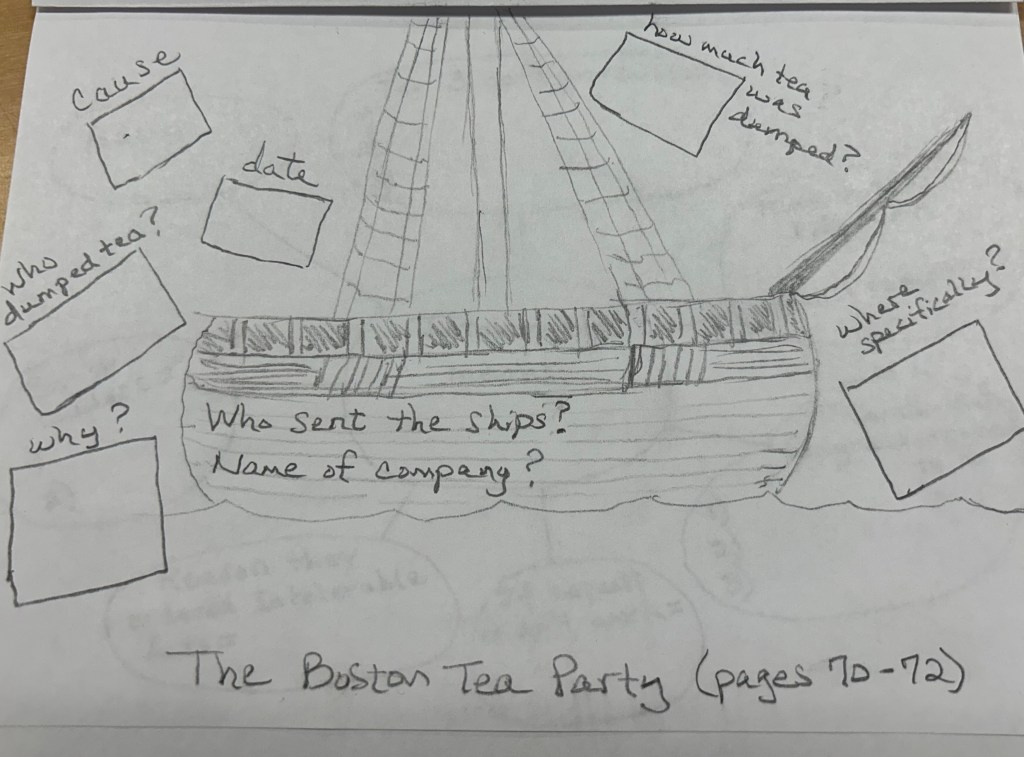 Cause
how much tea
was
dumped?
date
who
dumped tea?
where
specifically?
why?
Who sent the ships?
Name of company?
The Boston Tea Party (pages 70-72)